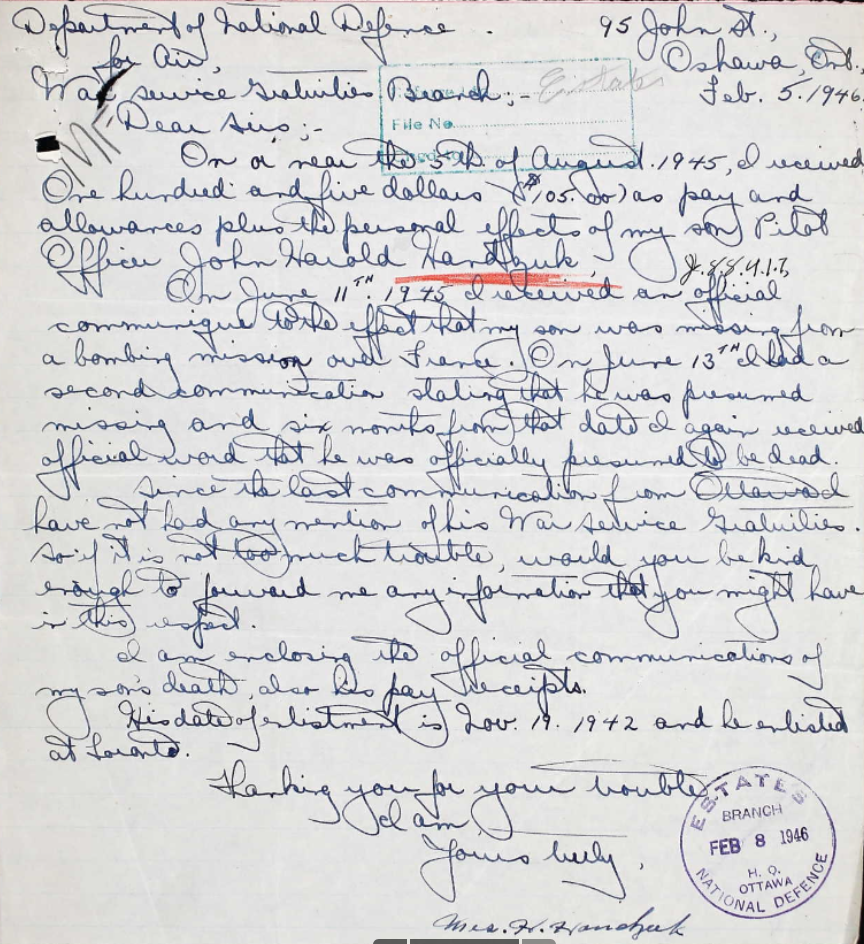 Department of National Defence. 95 John St.,
for Air, Oshawa, Ont.,
War service Gratuities Branch;- Estates
Feb. 5. 1946.
Dear Sirs;-
File No.
MF
On or near the 5th of August. 1945, I received
One hundred and five dollars ($105.00) as pay and
allowances plus the personal effects of my son Pilot
Officer John Harold Handzuk,
On June 11TH. 1945 I received an official
communique to the effect that my son was missing from
a bombing mission over France. On June 13TH I had a
second communication stating that he was presumed
missing and six months from that date I again received
official word that he was officially presumed to be dead.
Since the last communication from Ottawa I
have not had any mention of his War Service Gratuities.
So if it is not too much trouble, would you be kind
enough to forward me any information that you might have
in this respect.
I am enclosing the official communications of
my son's death, also his pay receipts.
His date of enlistment is Nov. 19. 1942 and he enlisted
at Toronto.
Thanking you for your trouble
I am,
Yours truly,
Mrs. H. Handzuk
ESTATES
BRANCH
FEB 8 1946
H. Q.
OTTAWA
NATIONAL DEFENCE